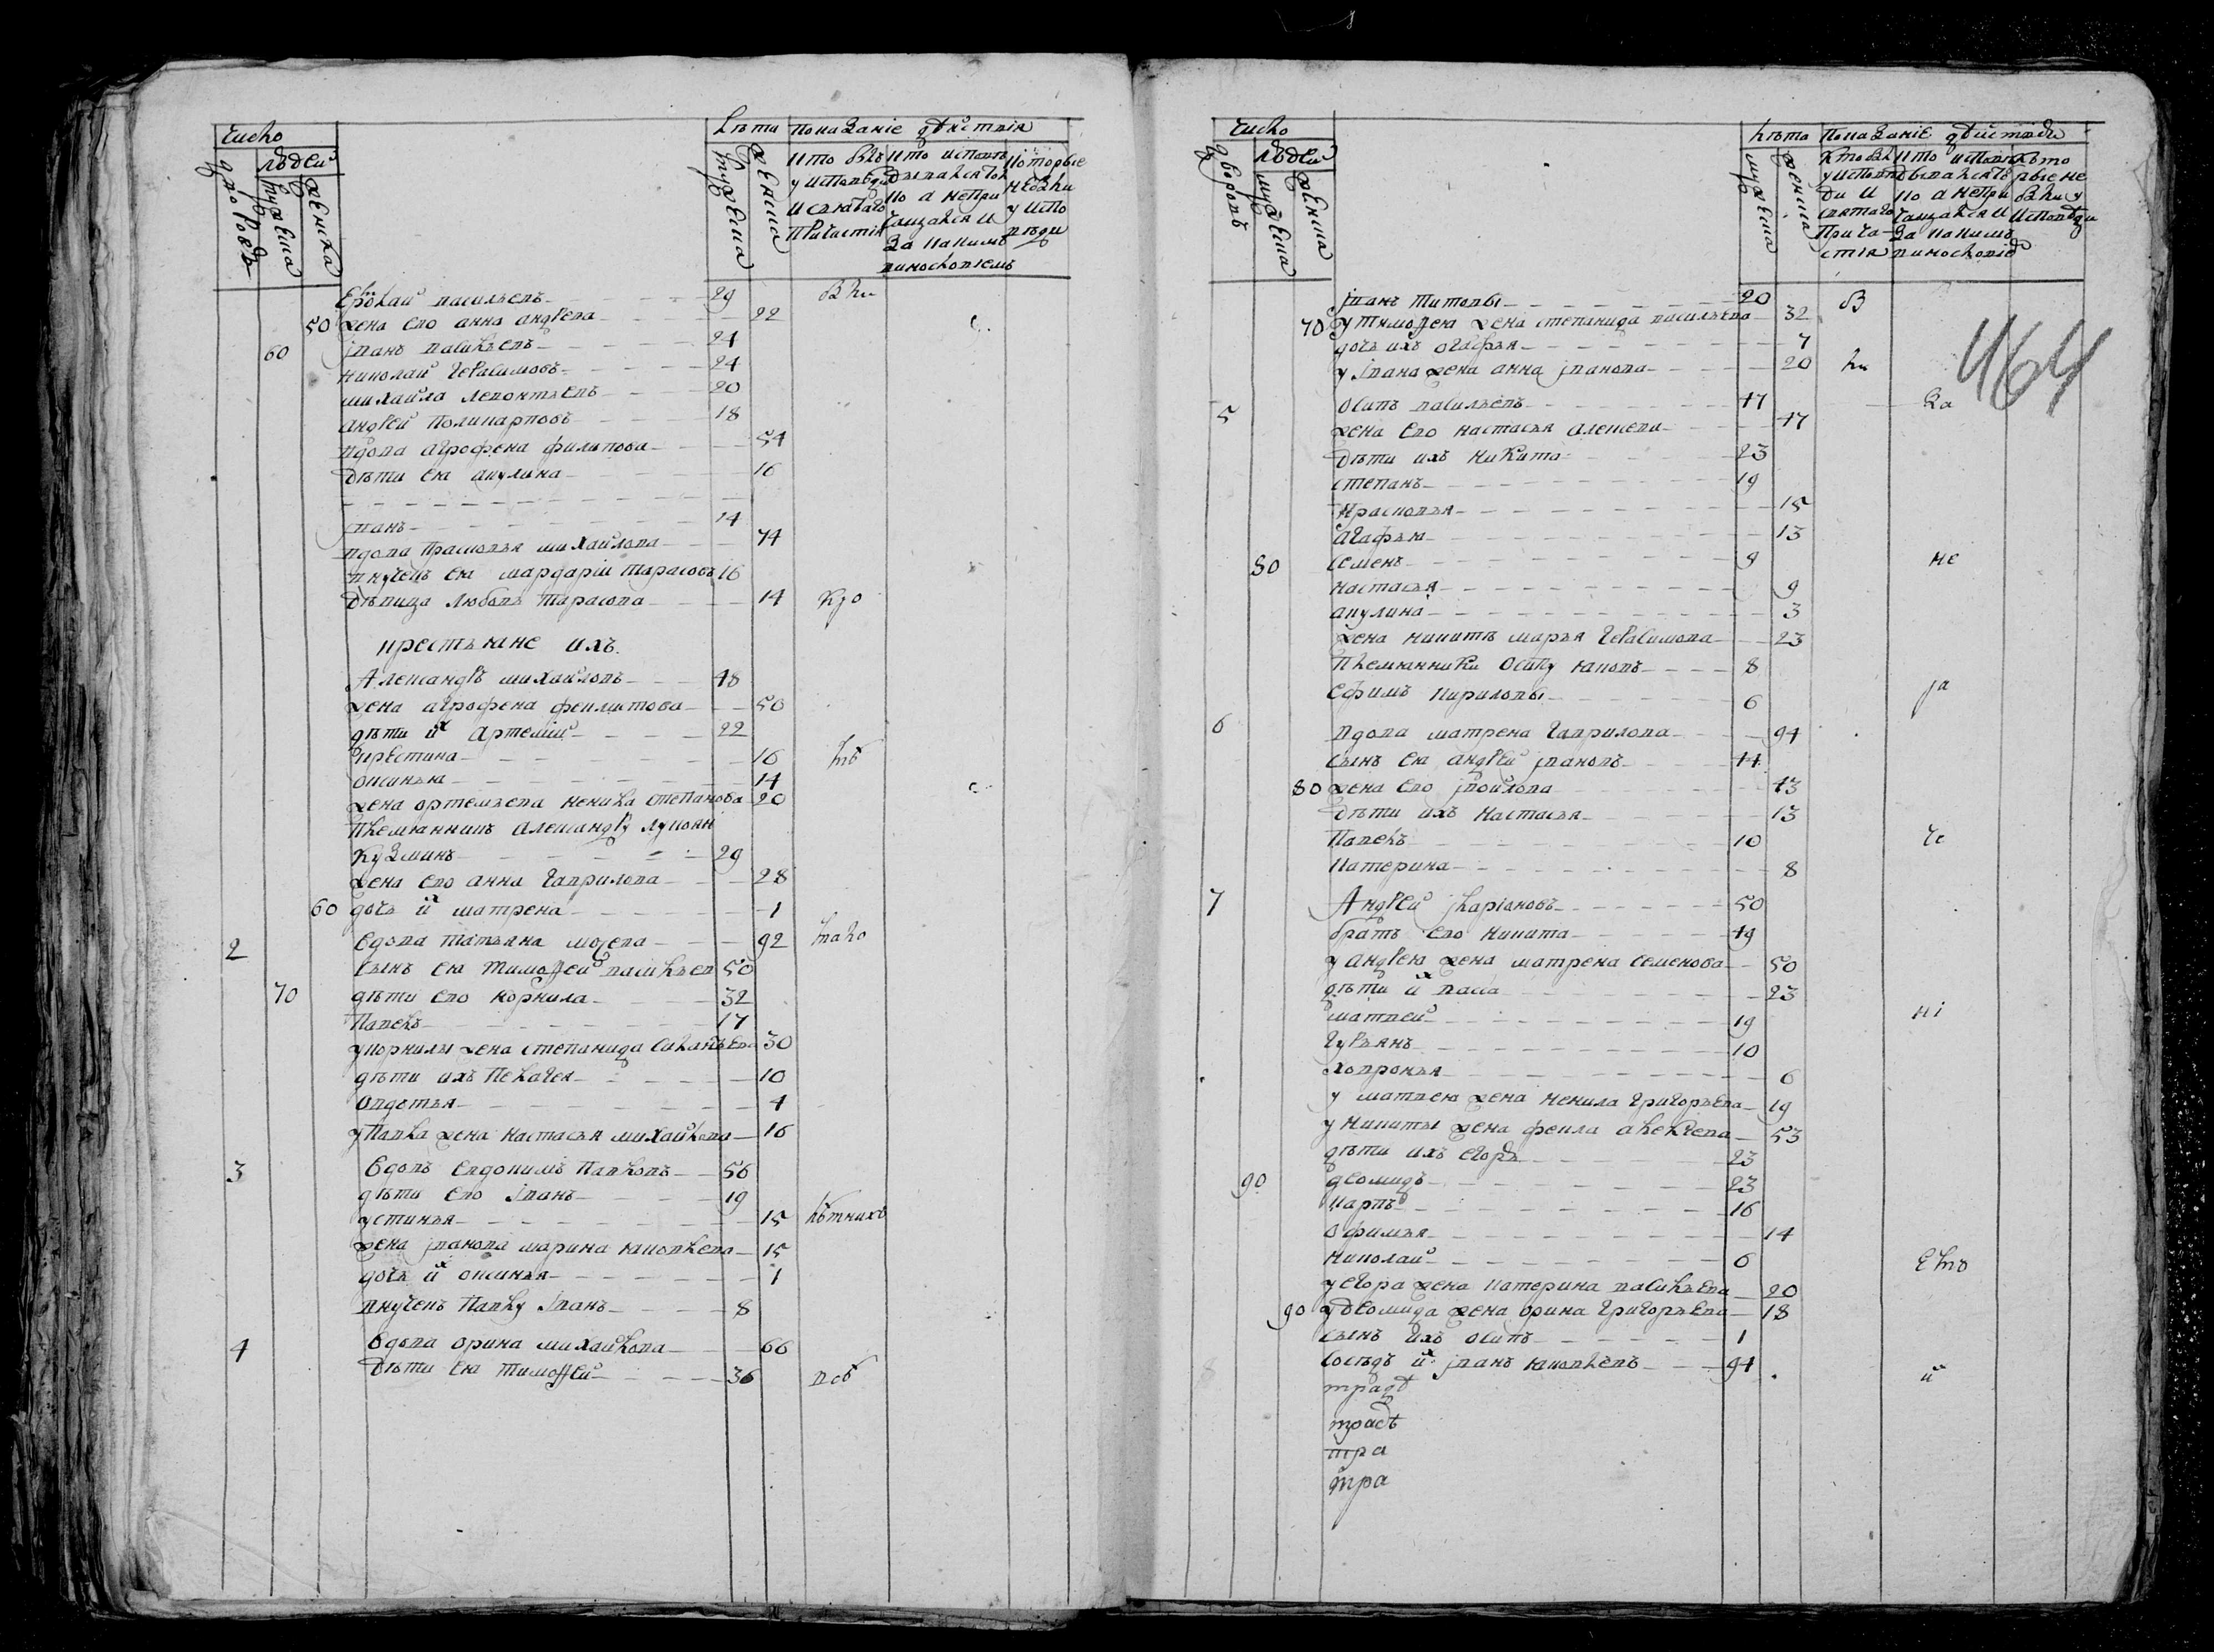 Число
дворовъ
людей
мужеска
женска
Лѣта
мужеска
женска
Показаніе дѣйствія
кто были у исповѣди и святаго причастія
кто исповѣдывался токмо а не причащался и за какимъ винословіемъ
которые не были у исповѣди
Ермолай васильевъ 29 Были
50 жена его анна андрева 22
60 іванъ васильевъ 24
николай герасимовъ 24
михайла левонтьевъ 20
андрей поликарповъ 18
вдова агрофена филипова 54
дѣти ея акулина 16
іванъ 14
вдова прасковья михайлова 74
внучекъ ея мардарій тарасовъ 16
дѣвица любовь тарасова 14
крестьяне ихъ
Александръ михайловъ 48
жена агрофена феклистова 50
дѣти их Артемий 22
христина 16
оксинья 14
жена ортемьева ненила степанова 20
племянникъ александру лукоян
кузминъ 29
жена его анна гаврилова 28
60 дочь их матрена 1
2 вдова татьяна мосева 92
сынъ ея тимофей васильев 50
70 дѣти его корнила 32
павелъ 17
у корнилы жена степанида силантьева 30
дѣти ихъ пелагея 10
овдотья 4
у павла жена настасья михайлова 16
3 вдовъ евдокимъ павловъ 56
дѣти его іванъ 19
устинья 15
жена іванова марина яковлева 15
дочь их оксинья 1
внучекъ павлу іванъ 8
4 вдова орина михайлова 66
дѣти ея тимофей 36
Число
дворовъ
людей
мужеска
женска
Лѣта
мужеска
женска
Показаніе дѣйства
кто были у исповѣди и святаго причастія
кто исповѣдывался но а не причащался и за какимъ винословіе
которые не были у исповѣди
464
іванъ титовы 20
70 у тимофея жена степанида васильева 32
дочь ихъ огафья 7
у івана жена анна іванова 20
5 осипъ васильевъ 47 за
жена его настасья алексева 47
дѣти ихъ никита 23
степанъ 19
прасковья 15
агафья 13
80 семенъ 9 не
настасья 9
акулина 3
жена никитѣ марья герасимова 23
племянники осипу яковъ 8
ефимъ кириловы 6
6 вдова матрена гаврилова 94
сынъ ея андрей івановъ 44
80 жена его 43
дѣти ихъ настасья 13
павелъ 10
катерина 8
7 Андрей іларіоновъ 50
братъ его никита 49
у андрея жена матрена семенова 50
дѣти их васа 23
матвей 19 ні
гурьянъ 10
хавронья 6
у матвея жена ненила григорьева 19
у никиты жена фекла алексева 53
дѣти ихъ егоръ 23
90 деомидъ 23
карпъ 16
офимья 14
николай 6
у егора жена катерина васильева 20
90 у деомида жена орина григорьева 18
сынъ ихъ осипъ 1
сосѣдъ их іванъ яковлевъ 94